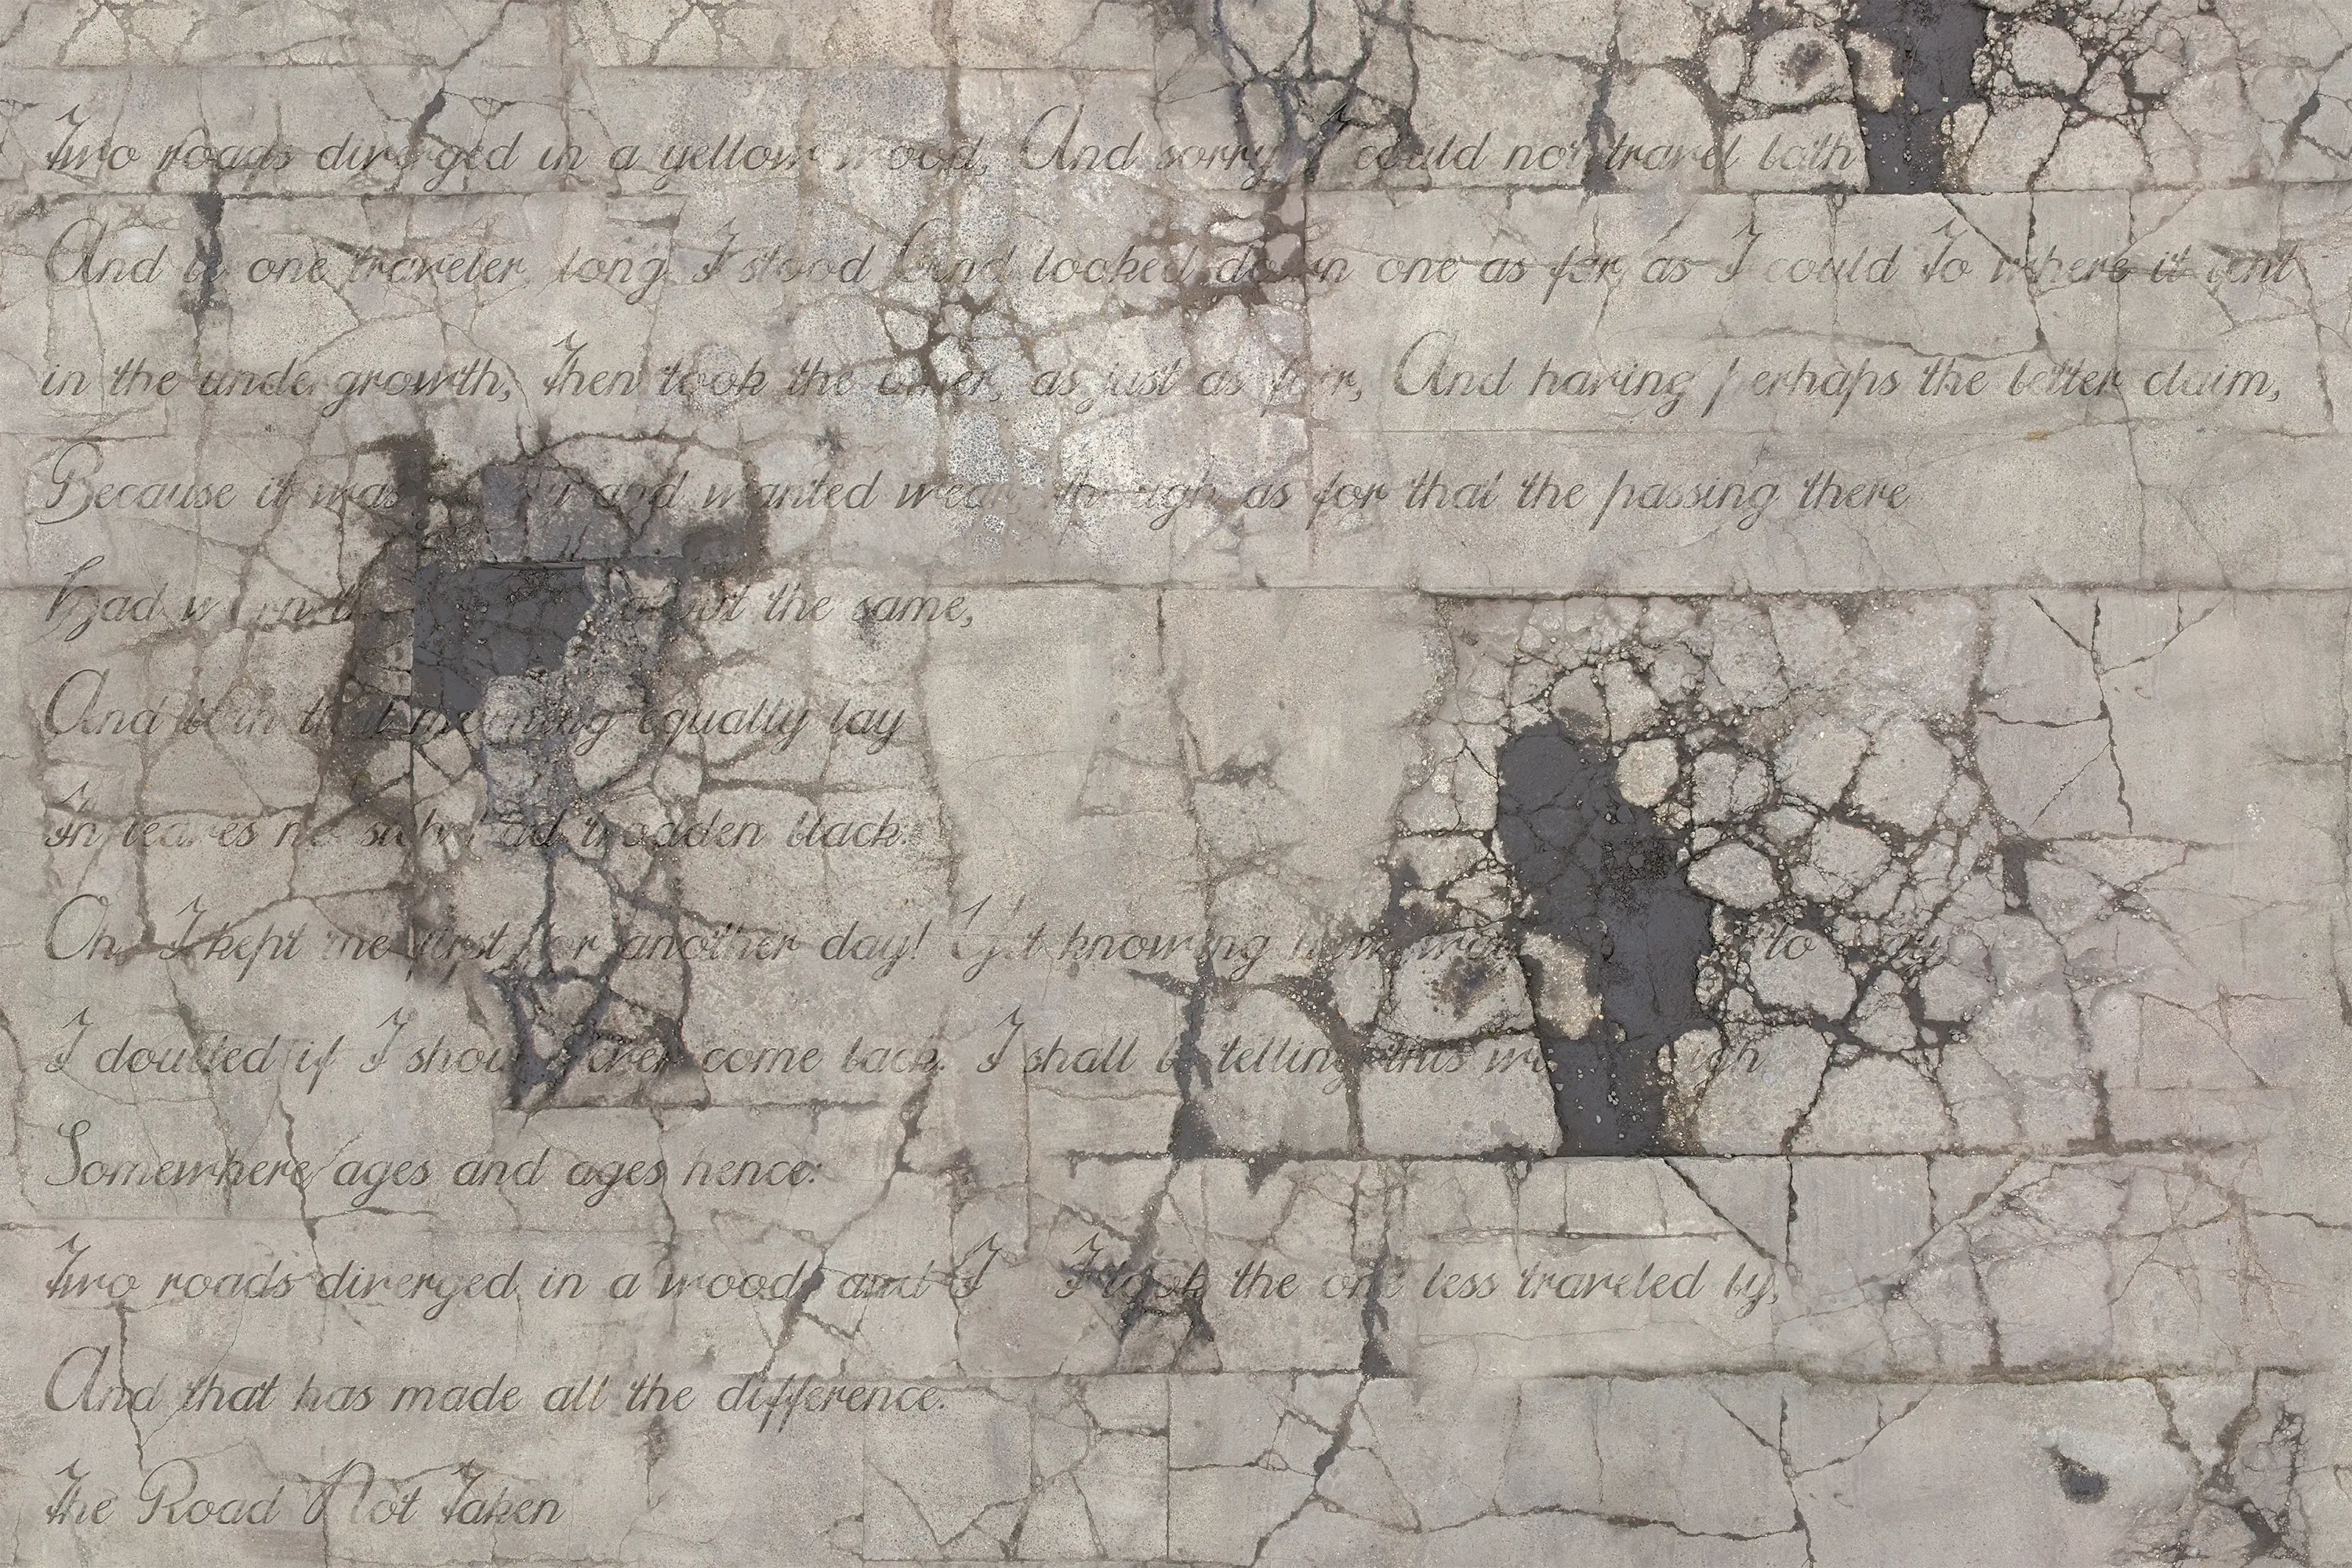 Two roads diverged in a yellow wood, And sorry I could not travel both
And be one traveler, long I stood And looked down one as far as I could To where it bent
in the undergrowth, Then took the other, as just as fair, And having perhaps the better claim,
Because it was and wanted wear, though as for that the passing there
Had worn about the same,
And both that morning equally lay
In leaves no had trodden black.
Oh, I kept the first for another day! Yet knowing how to
I doubted if I should ever come back. I shall be telling this sigh
Somewhere ages and ages hence:
Two roads diverged in a wood, and I I took the one less traveled by,
And that has made all the difference.
The Road Not Taken